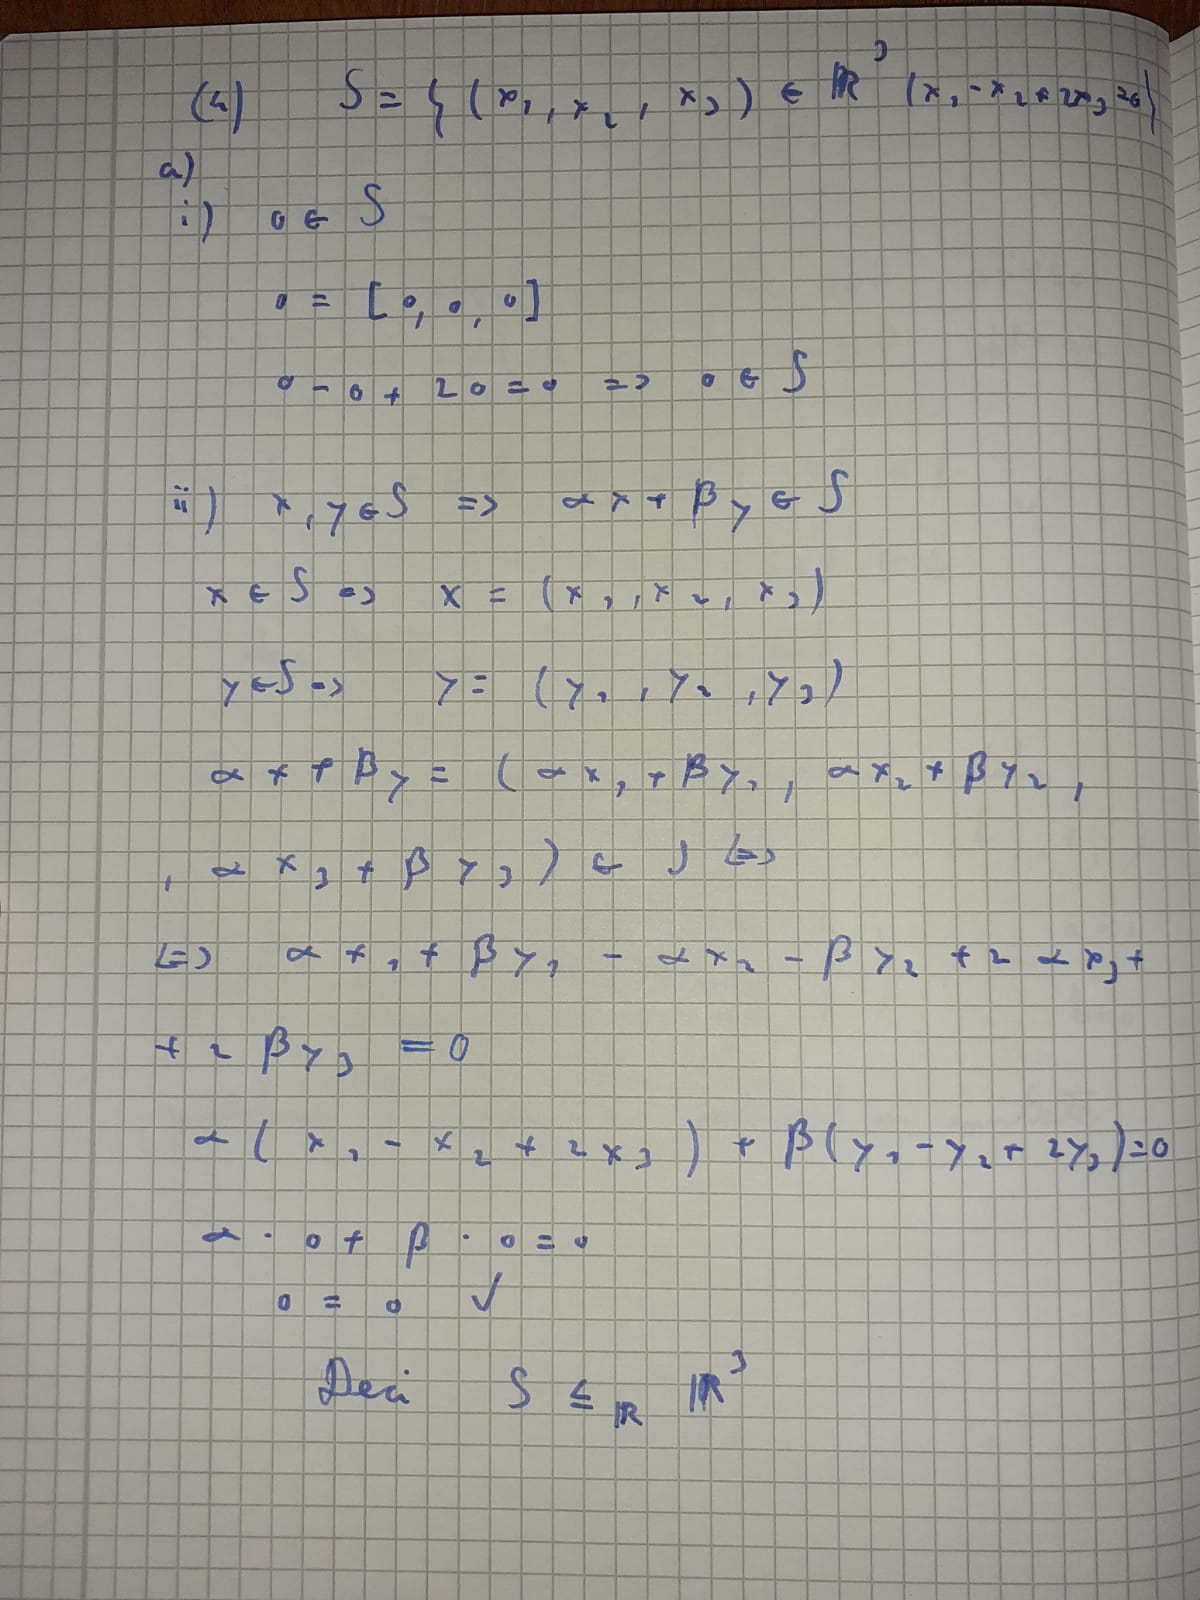 (4) S = { (x₁, x₂, x₃) ∈ ℝ³ | x₁ - x₂ + 2x₃ = 0 }
a)
i) 0 ∈ S
0 = [0, 0, 0]
0 - 0 + 2 0 = 0 => 0 ∈ S
ii) x, y ∈ S => αx + βy ∈ S
x ∈ S => x = (x₁, x₂, x₃)
y ∈ S => y = (y₁, y₂, y₃)
αx + βy = (αx₁ + βy₁, αx₂ + βy₂,
, αx₃ + βy₃) ∈ S <=>
<=> αx₁ + βy₁ - αx₂ - βy₂ + 2αx₃ +
+ 2βy₃ = 0
α(x₁ - x₂ + 2x₃) + β(y₁ - y₂ + 2y₃) = 0
α · 0 + β · 0 = 0
0 = 0 ✓
Deci S ≤_ℝ ℝ³